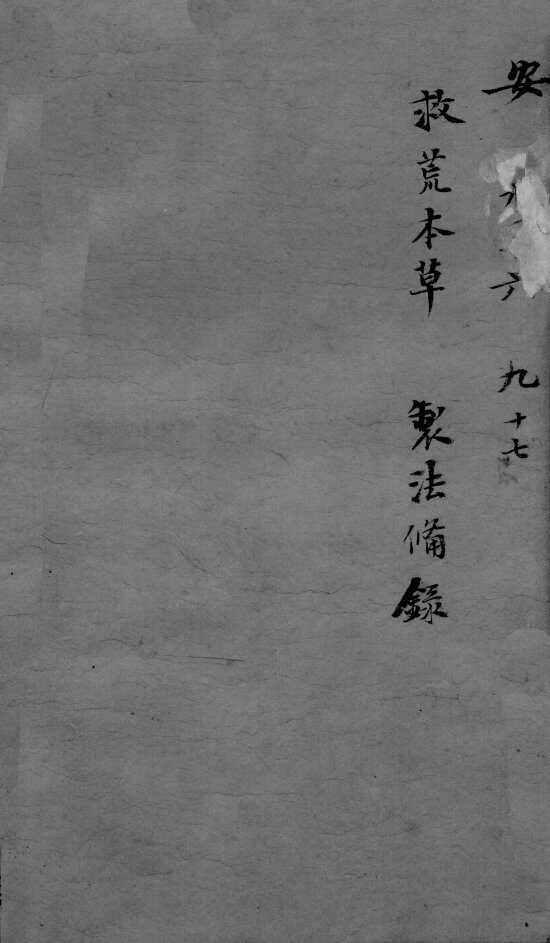 安 六 九十七
救荒本草 製法備録